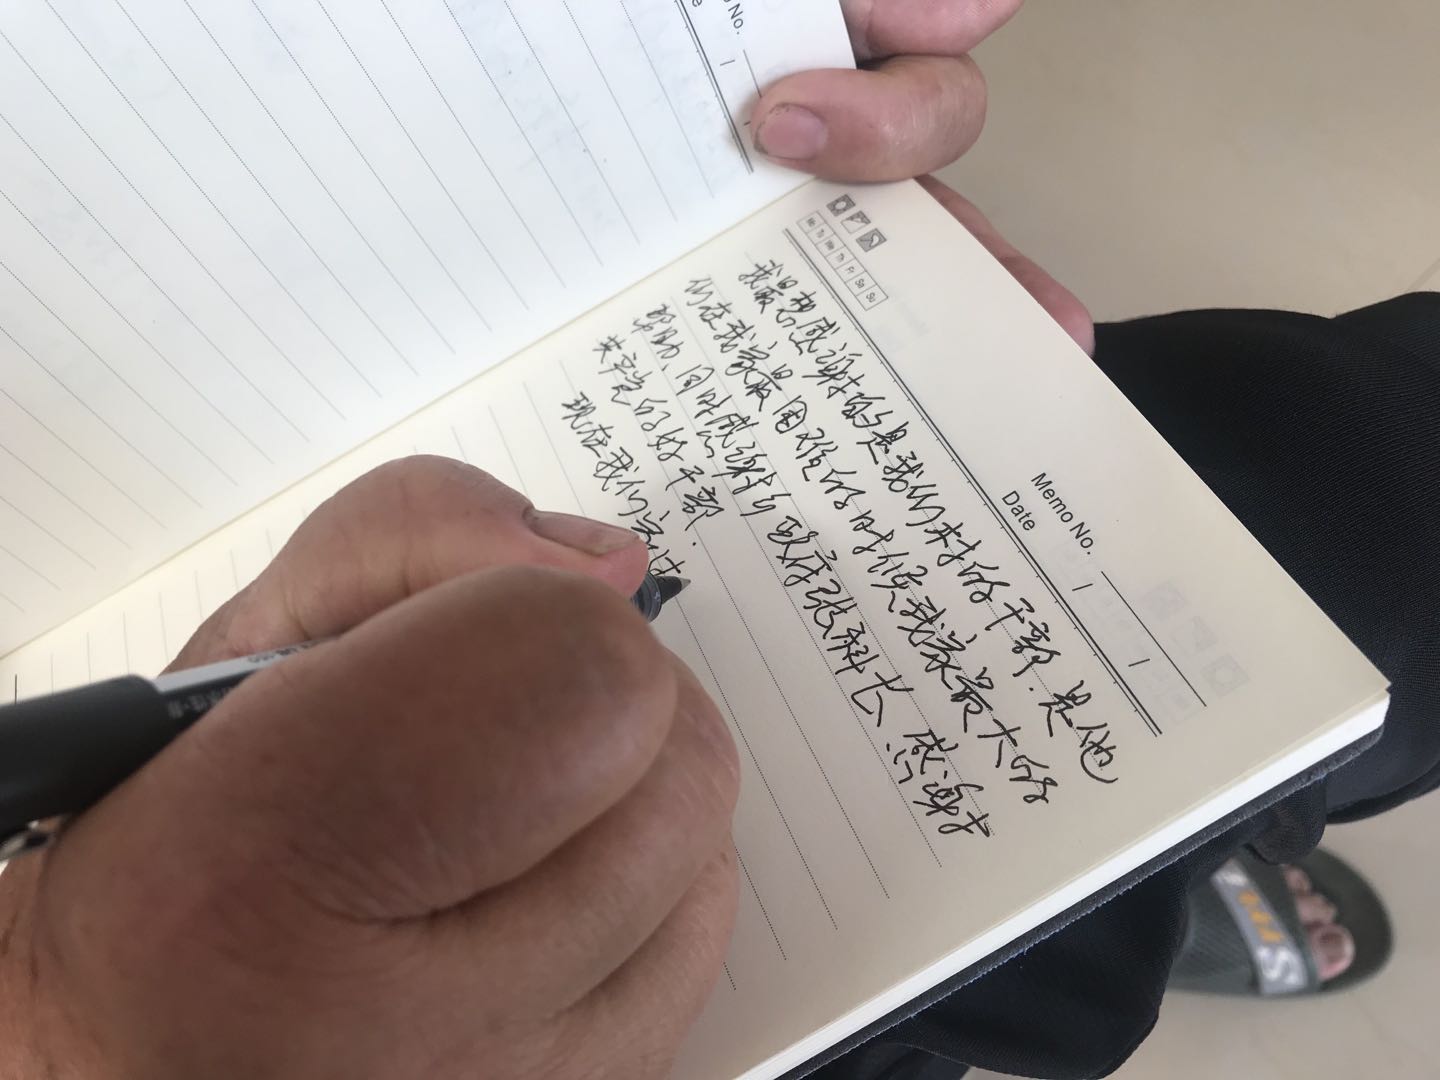 No.
Memo No.
Date
Mo Tu We Th Fr Sa Su
我最想感谢的是我们村的干部.是他
们在我家最困难的时候我家最大的
帮助.同时感谢政府张科长.感谢
共产党的好干部.
现在我们家